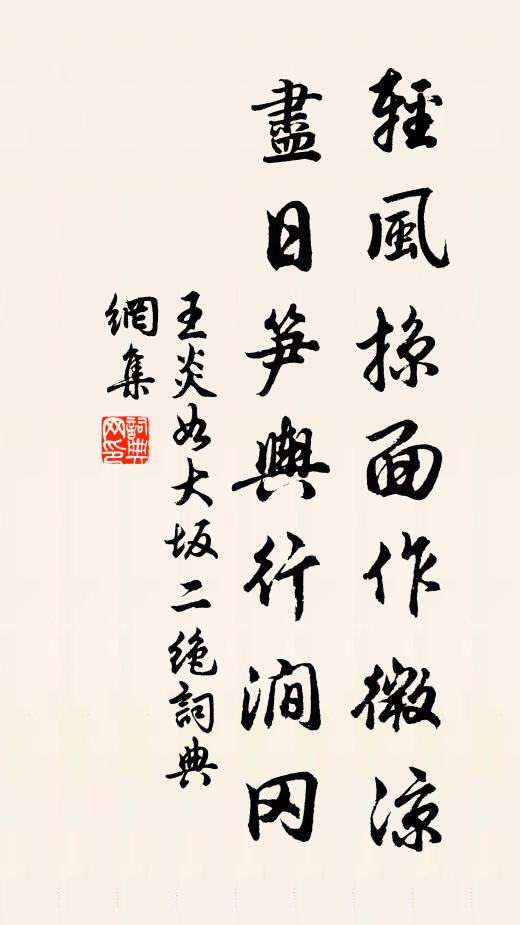 輕風掠面作微涼
盡日笋輿行澗冈
王炎如大坂二絶詞典
網集
詞典
网印